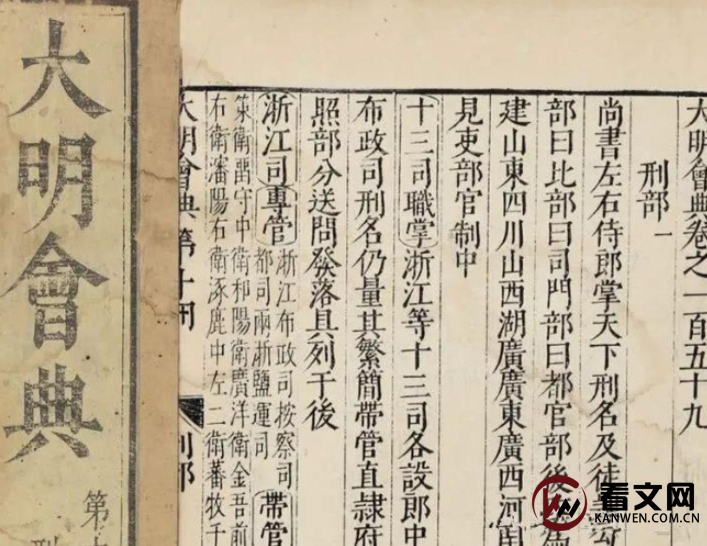 大明會典卷之一百五十九
刑部一
尚書左右侍郎掌天下刑名及徒
部曰比部曰司門部曰都官部後
建山東四川山西湖廣廣東廣西河南
見吏部官制中
十三司職掌浙江等十三司各設郎中
布政司刑名仍量其繁簡帶管直隸府
照部分送問發落具列于後
浙江司專管浙江布政司按察司
都司兩浙鹽運司帶管
策衛留守中衛和陽衛廣洋衛金吾前
右衛瀋陽右衛涿鹿中左二衛蕃牧千
大明會典第十
刑部
大明會典
第十
刑
看文网
KANWEN.COM.CN